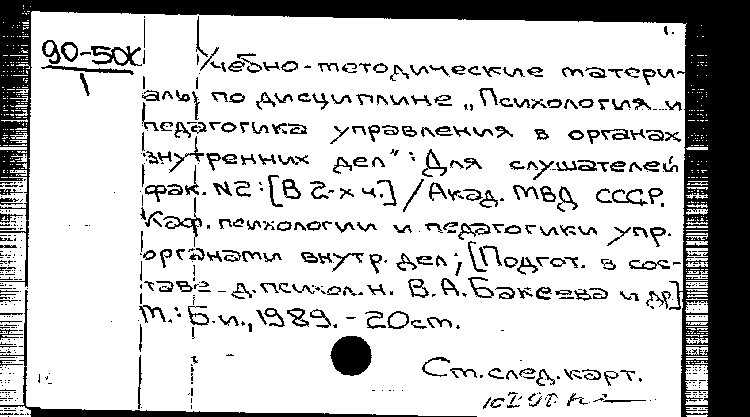 1.
90-50К
1
Учебно-методические матери-
алы по дисциплине „Психология и
педагогика управления в органах
внутренних дел“: Для слушателей
фак. N2: [В 2-х ч.] / Акад. МВД СССР.
Каф. психологии и педагогики упр.
органами внутр. дел; [Подгот. в сос-
таве д. психол. н. В.А. Бакеева и др]
М.: Б.и., 1989. - 20 см.
Ст. след. карт.